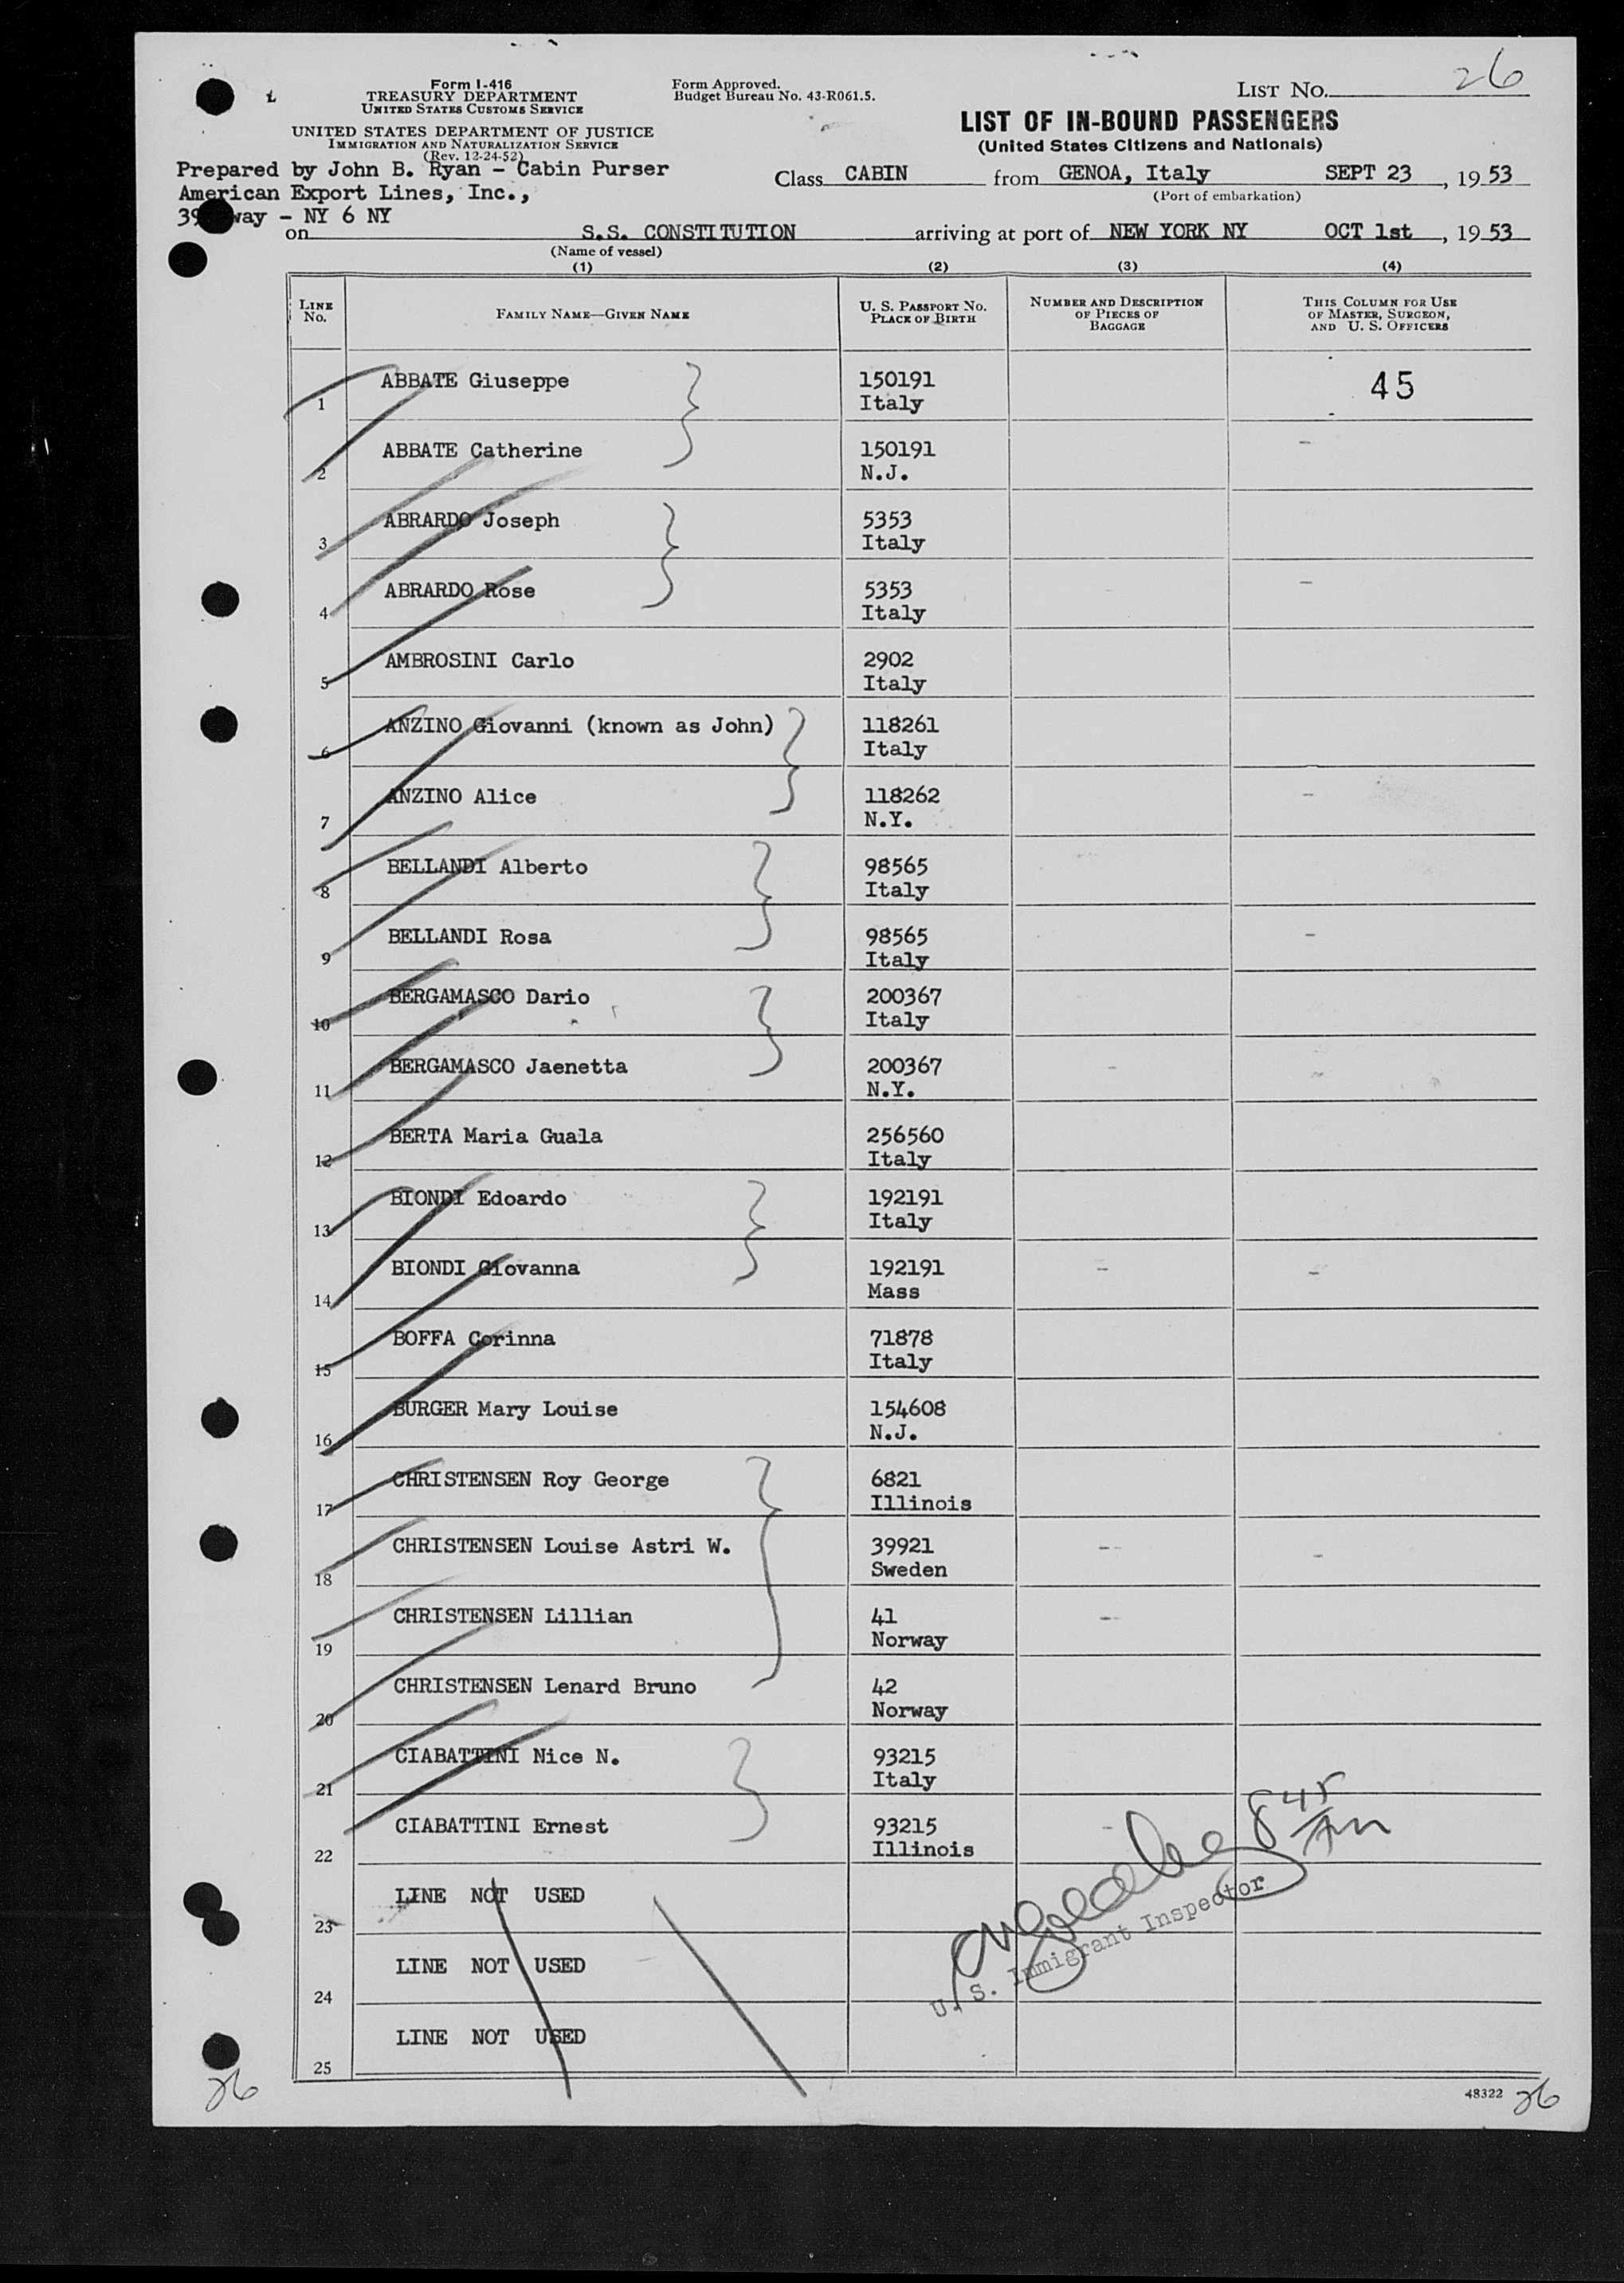 Form I-416
TREASURY DEPARTMENT
UNITED STATES CUSTOMS SERVICE
UNITED STATES DEPARTMENT OF JUSTICE
IMMIGRATION AND NATURALIZATION SERVICE
(Rev. 12-24-52)
Form Approved.
Budget Bureau No. 43-R061.5.
LIST No. 26
LIST OF IN-BOUND PASSENGERS
(United States Citizens and Nationals)
Prepared by John B. Ryan - Cabin Purser
American Export Lines, Inc.,
39 way - NY 6 NY
Class CABIN from GENOA, Italy SEPT 23, 1953
(Port of embarkation)
on S.S. CONSTITUTION arriving at port of NEW YORK NY OCT 1st, 1953
(Name of vessel)
(1) (2) (3) (4)
LINE No. FAMILY NAME—GIVEN NAME U. S. PASSPORT NO. PLACE OF BIRTH NUMBER AND DESCRIPTION OF PIECES OF BAGGAGE THIS COLUMN FOR USE OF MASTER, SURGEON, AND U. S. OFFICERS
1 ABBATE Giuseppe 150191 45
Italy
2 ABBATE Catherine 150191
N.J.
3 ABRARDO Joseph 5353
Italy
4 ABRARDO Rose 5353
Italy
5 AMBROSINI Carlo 2902
Italy
6 ANZINO Giovanni (known as John) 118261
Italy
7 ANZINO Alice 118262
N.Y.
8 BELLANDI Alberto 98565
Italy
9 BELLANDI Rosa 98565
Italy
10 BERGAMASCO Dario 200367
Italy
11 BERGAMASCO Jaenetta 200367
N.Y.
12 BERTA Maria Guala 256560
Italy
13 BIONDI Edoardo 192191
Italy
14 BIONDI Giovanna 192191
Mass
15 BOFFA Corinna 71878
Italy
16 BURGER Mary Louise 154608
N.J.
17 CHRISTENSEN Roy George 6821
Illinois
18 CHRISTENSEN Louise Astri W. 39921
Sweden
19 CHRISTENSEN Lillian 41
Norway
20 CHRISTENSEN Lenard Bruno 42
Norway
21 CIABATTINI Nice N. 93215
Italy
22 CIABATTINI Ernest 93215
Illinois
23 LINE NOT USED
24 LINE NOT USED
25 LINE NOT USED
845
Am
U. S. Immigrant Inspector
26
48322 26